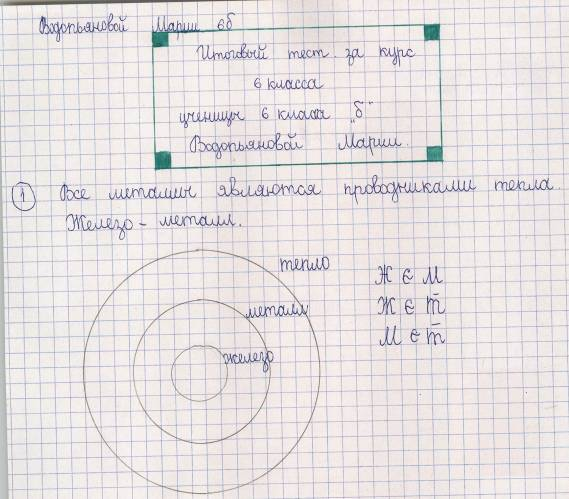 Водопьяновой Марии 6б
Итоговый тест за курс
6 класса
ученицы 6 класса "б"
Водопьяновой Марии.
1 Все металлы являются проводниками тепла.
Железо - металл.
тепло
металл
железо
Ж ∈ М
Ж ∈ m̄
М ∈ m̄